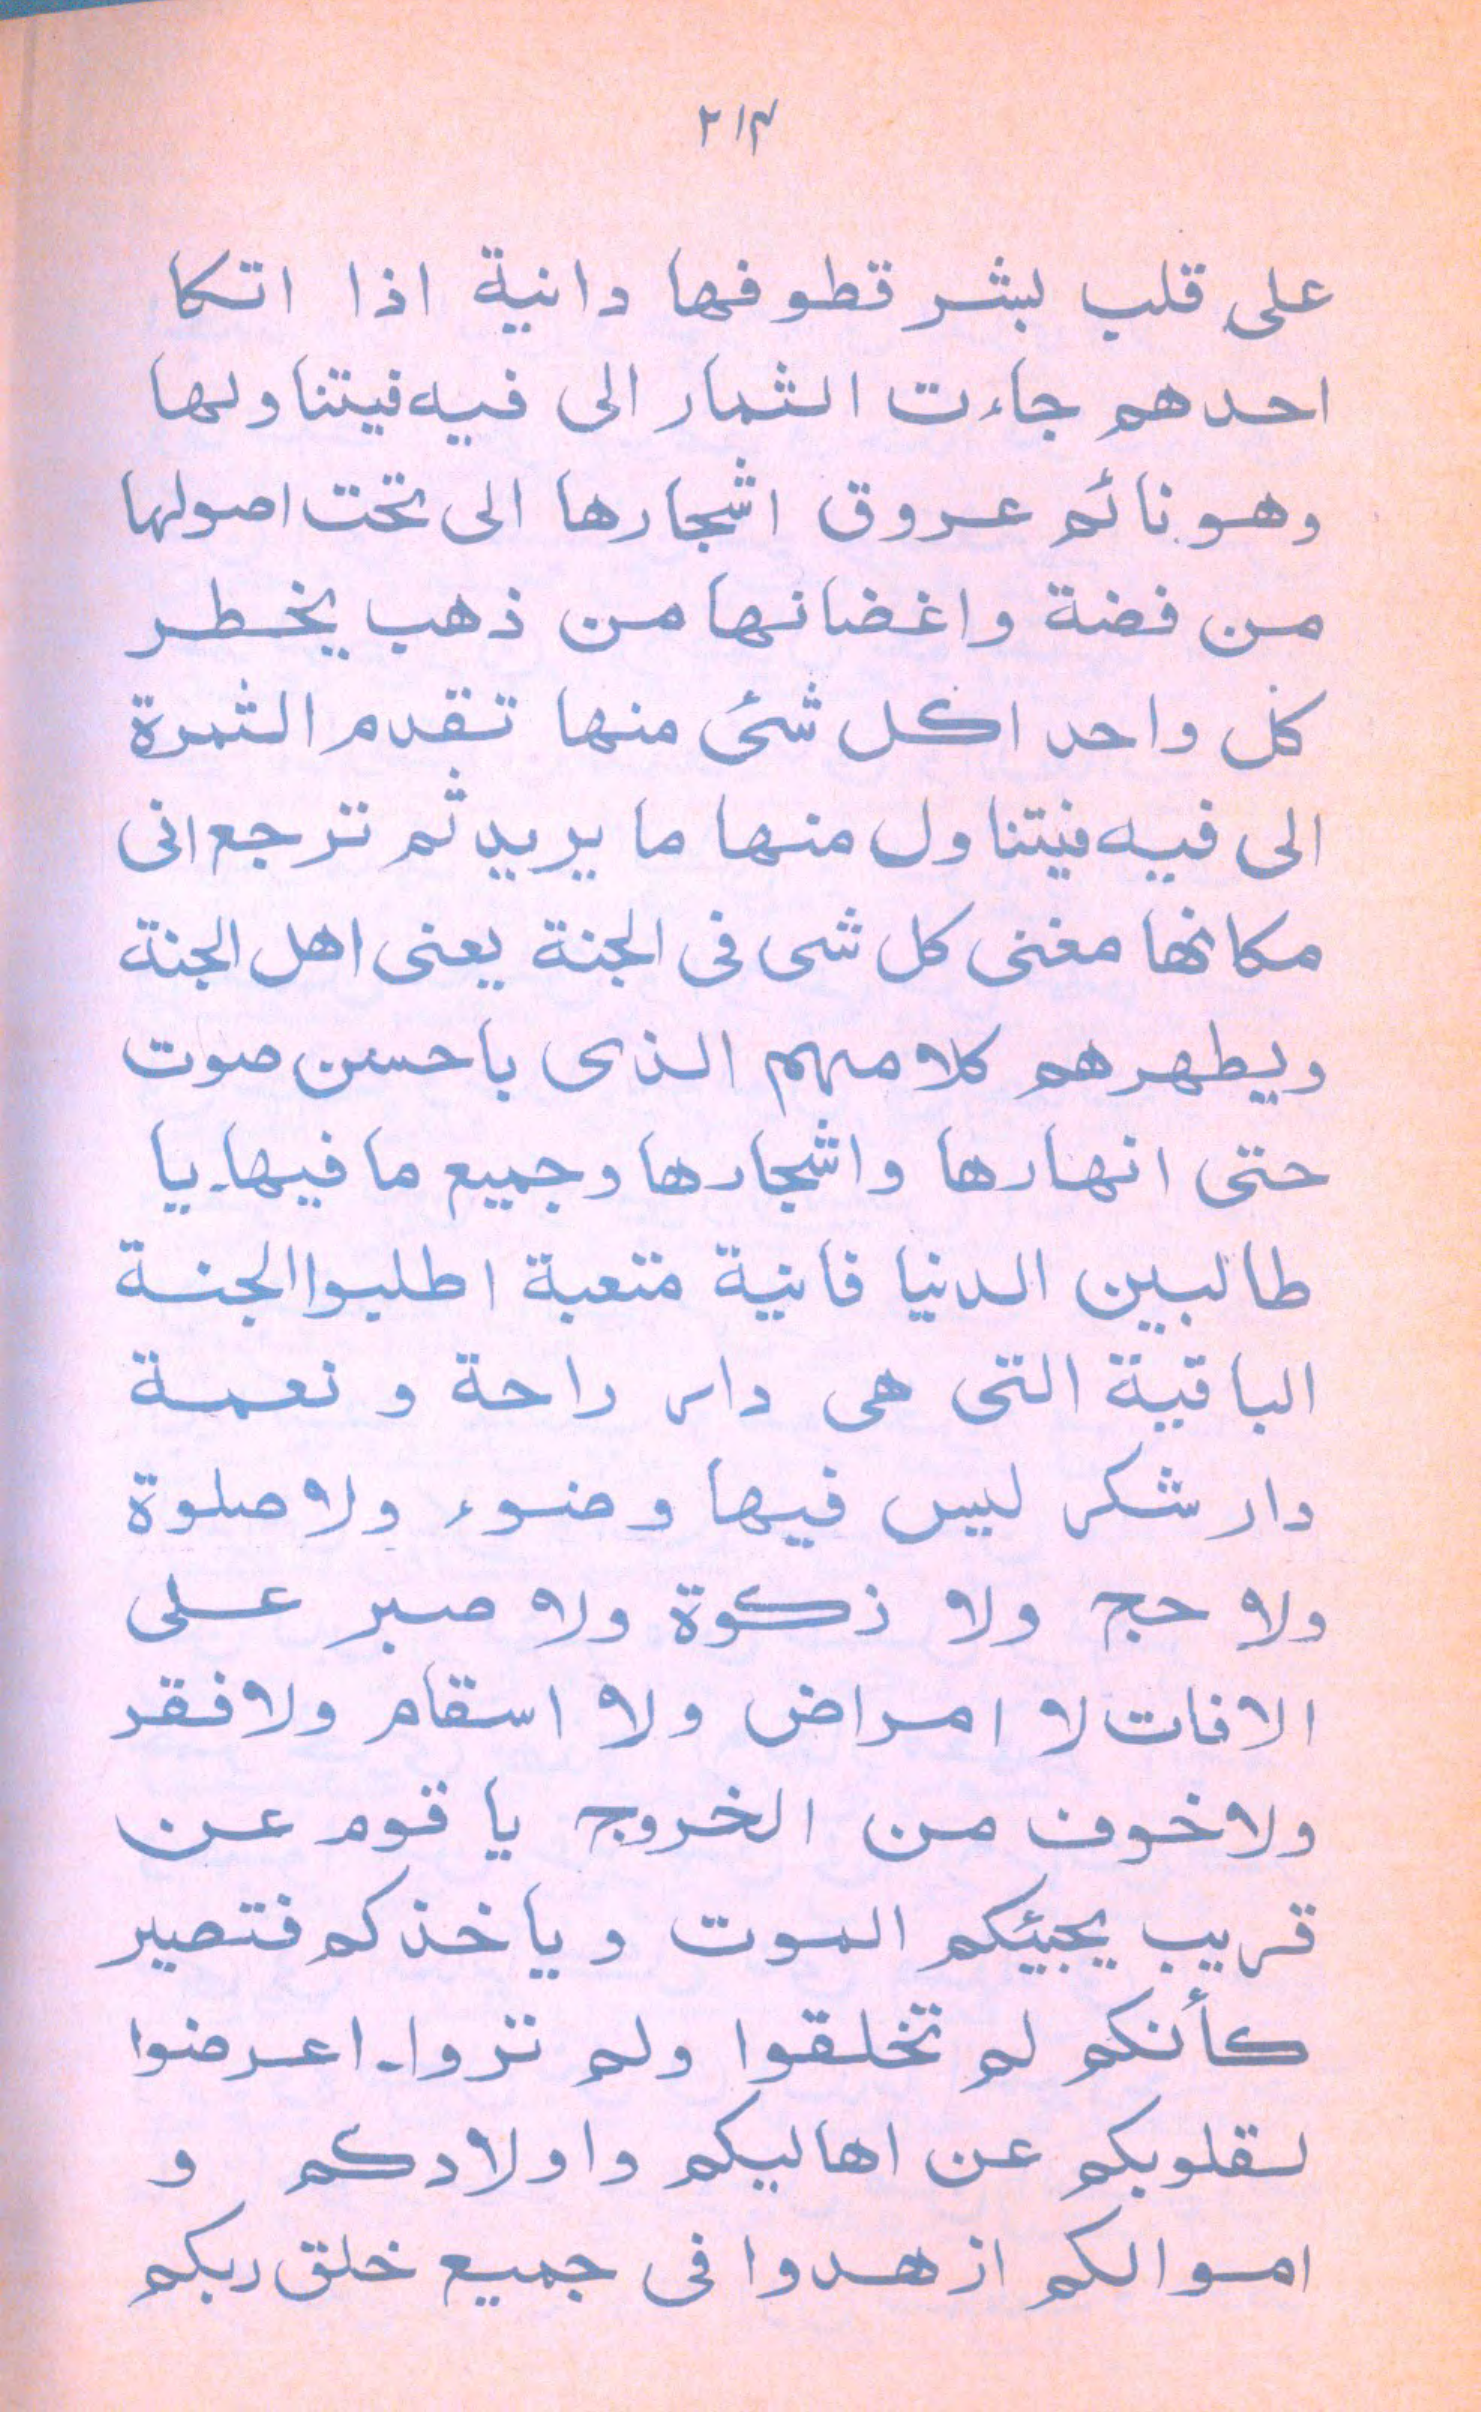 ۲۱۴
على قلب بشر قطوفها دانية اذا اتكا
احدهم جاءت الثمار الى فيه فيتناولها
وهو نائم عروق اشجارها الى تحت اصولها
من فضة واغضانها من ذهب يخطر
كل واحد اكل شئ منها تقدم الثمرة
الى فيه فيتناول منها ما يريد ثم ترجع الى
مكانها مغنى كل شى فى الجنة يعنى اهل الجنة
ويطهرهم كلامهم الذى باحسن صوت
حتى انهارها واشجارها وجميع ما فيها۔ يا
طالبين الدنيا فانية متعبة اطلبوا الجنة
الباقية التى هى دار راحة و نعمة
دار شكر ليس فيها وضوء ولا صلوة
ولا حج ولا زكوة ولا صبر على
الافات لا امراض ولا اسقام ولا فقر
ولا خوف من الخروج يا قوم عن
قريب يجيئكم الموت وياخذكم فتصير
كأنكم لم تخلقوا ولم تروا۔ اعرضوا
لقلوبكم عن اهاليكم واولادكم و
اموالكم ازهدوا فى جميع خلق ربكم